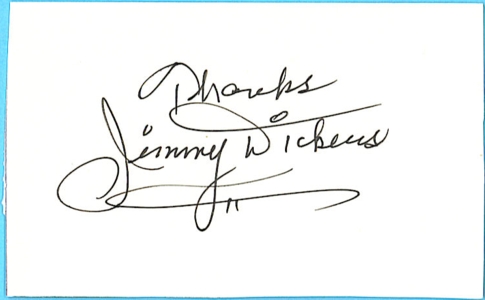 Thanks
Jimmy Dickens